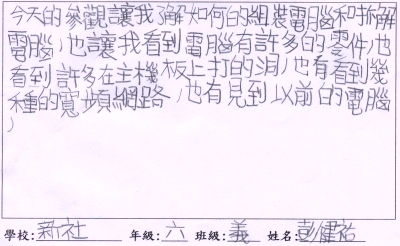 今天的參觀讓我了解如何的組裝電腦和拆解
電腦,也讓我看到電腦有許多的零件,也
看到許多在主機板上打的洞,也有看到幾
種的寬頻網路,也有見到以前的電腦
,
學校:新社 年級:六 班級:義 姓名:彭健祐